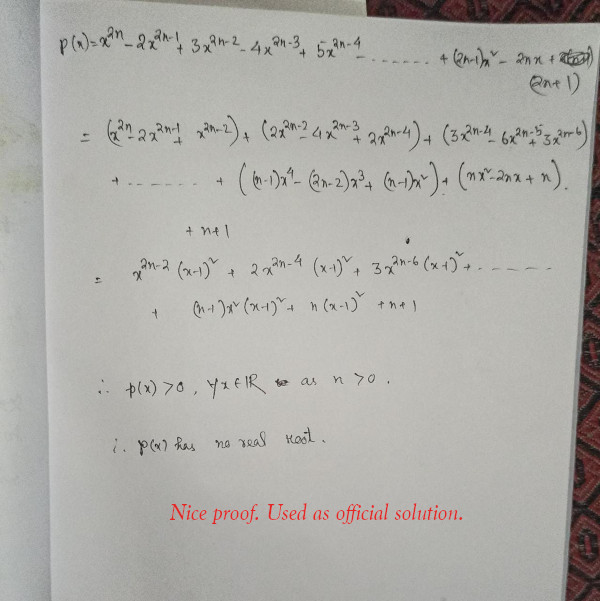 p(x) = x^{2n} - 2x^{2n-1} + 3x^{2n-2} - 4x^{2n-3} + 5x^{2n-4} - ....... + (2n-1)x² - 2nx +
(2n+1)
= (x^{2n} - 2x^{2n-1} + x^{2n-2}) + (2x^{2n-2} - 4x^{2n-3} + 2x^{2n-4}) + (3x^{2n-4} - 6x^{2n-5} + 3x^{2n-6})
+ ....... + ((n-1)x⁴ - (2n-2)x³ + (n-1)x²) + (nx² - 2nx + n).
+ n+1
= x^{2n-2} (x-1)² + 2x^{2n-4} (x-1)² + 3x^{2n-6} (x-1)² + .......
+ (n-1)x² (x-1)² + n(x-1)² + n+1
∴ p(x) > 0, ∀x∈ℝ as n > 0.
∴ p(x) has no real root.
Nice proof. Used as official solution.